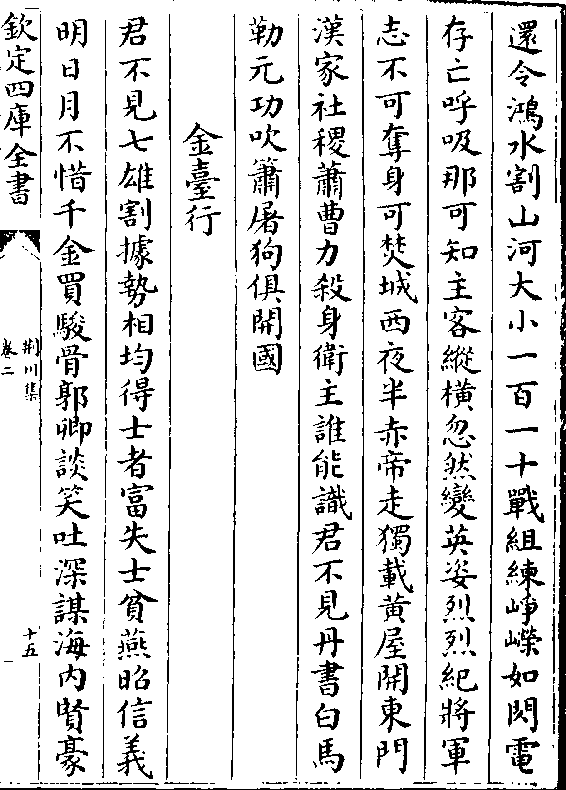 還令鴻水割山河大小一百一十戰組練崢嶸如閃電
存亡呼吸那可知主客縱横忽然變英姿烈烈紀將軍
志不可奪身可焚城西夜半赤帝走獨載黄屋開東門
漢家社稷蕭曹力殺身衛主誰能識君不見丹書白馬
勒元功吹簫屠狗俱開國
金臺行
君不見七雄割據勢相均得士者富失士貧燕昭信義
明日月不惜千金買駿骨郭卿談笑吐深謀海内賢豪
欽定四庫全書
荆川集
卷二
十五